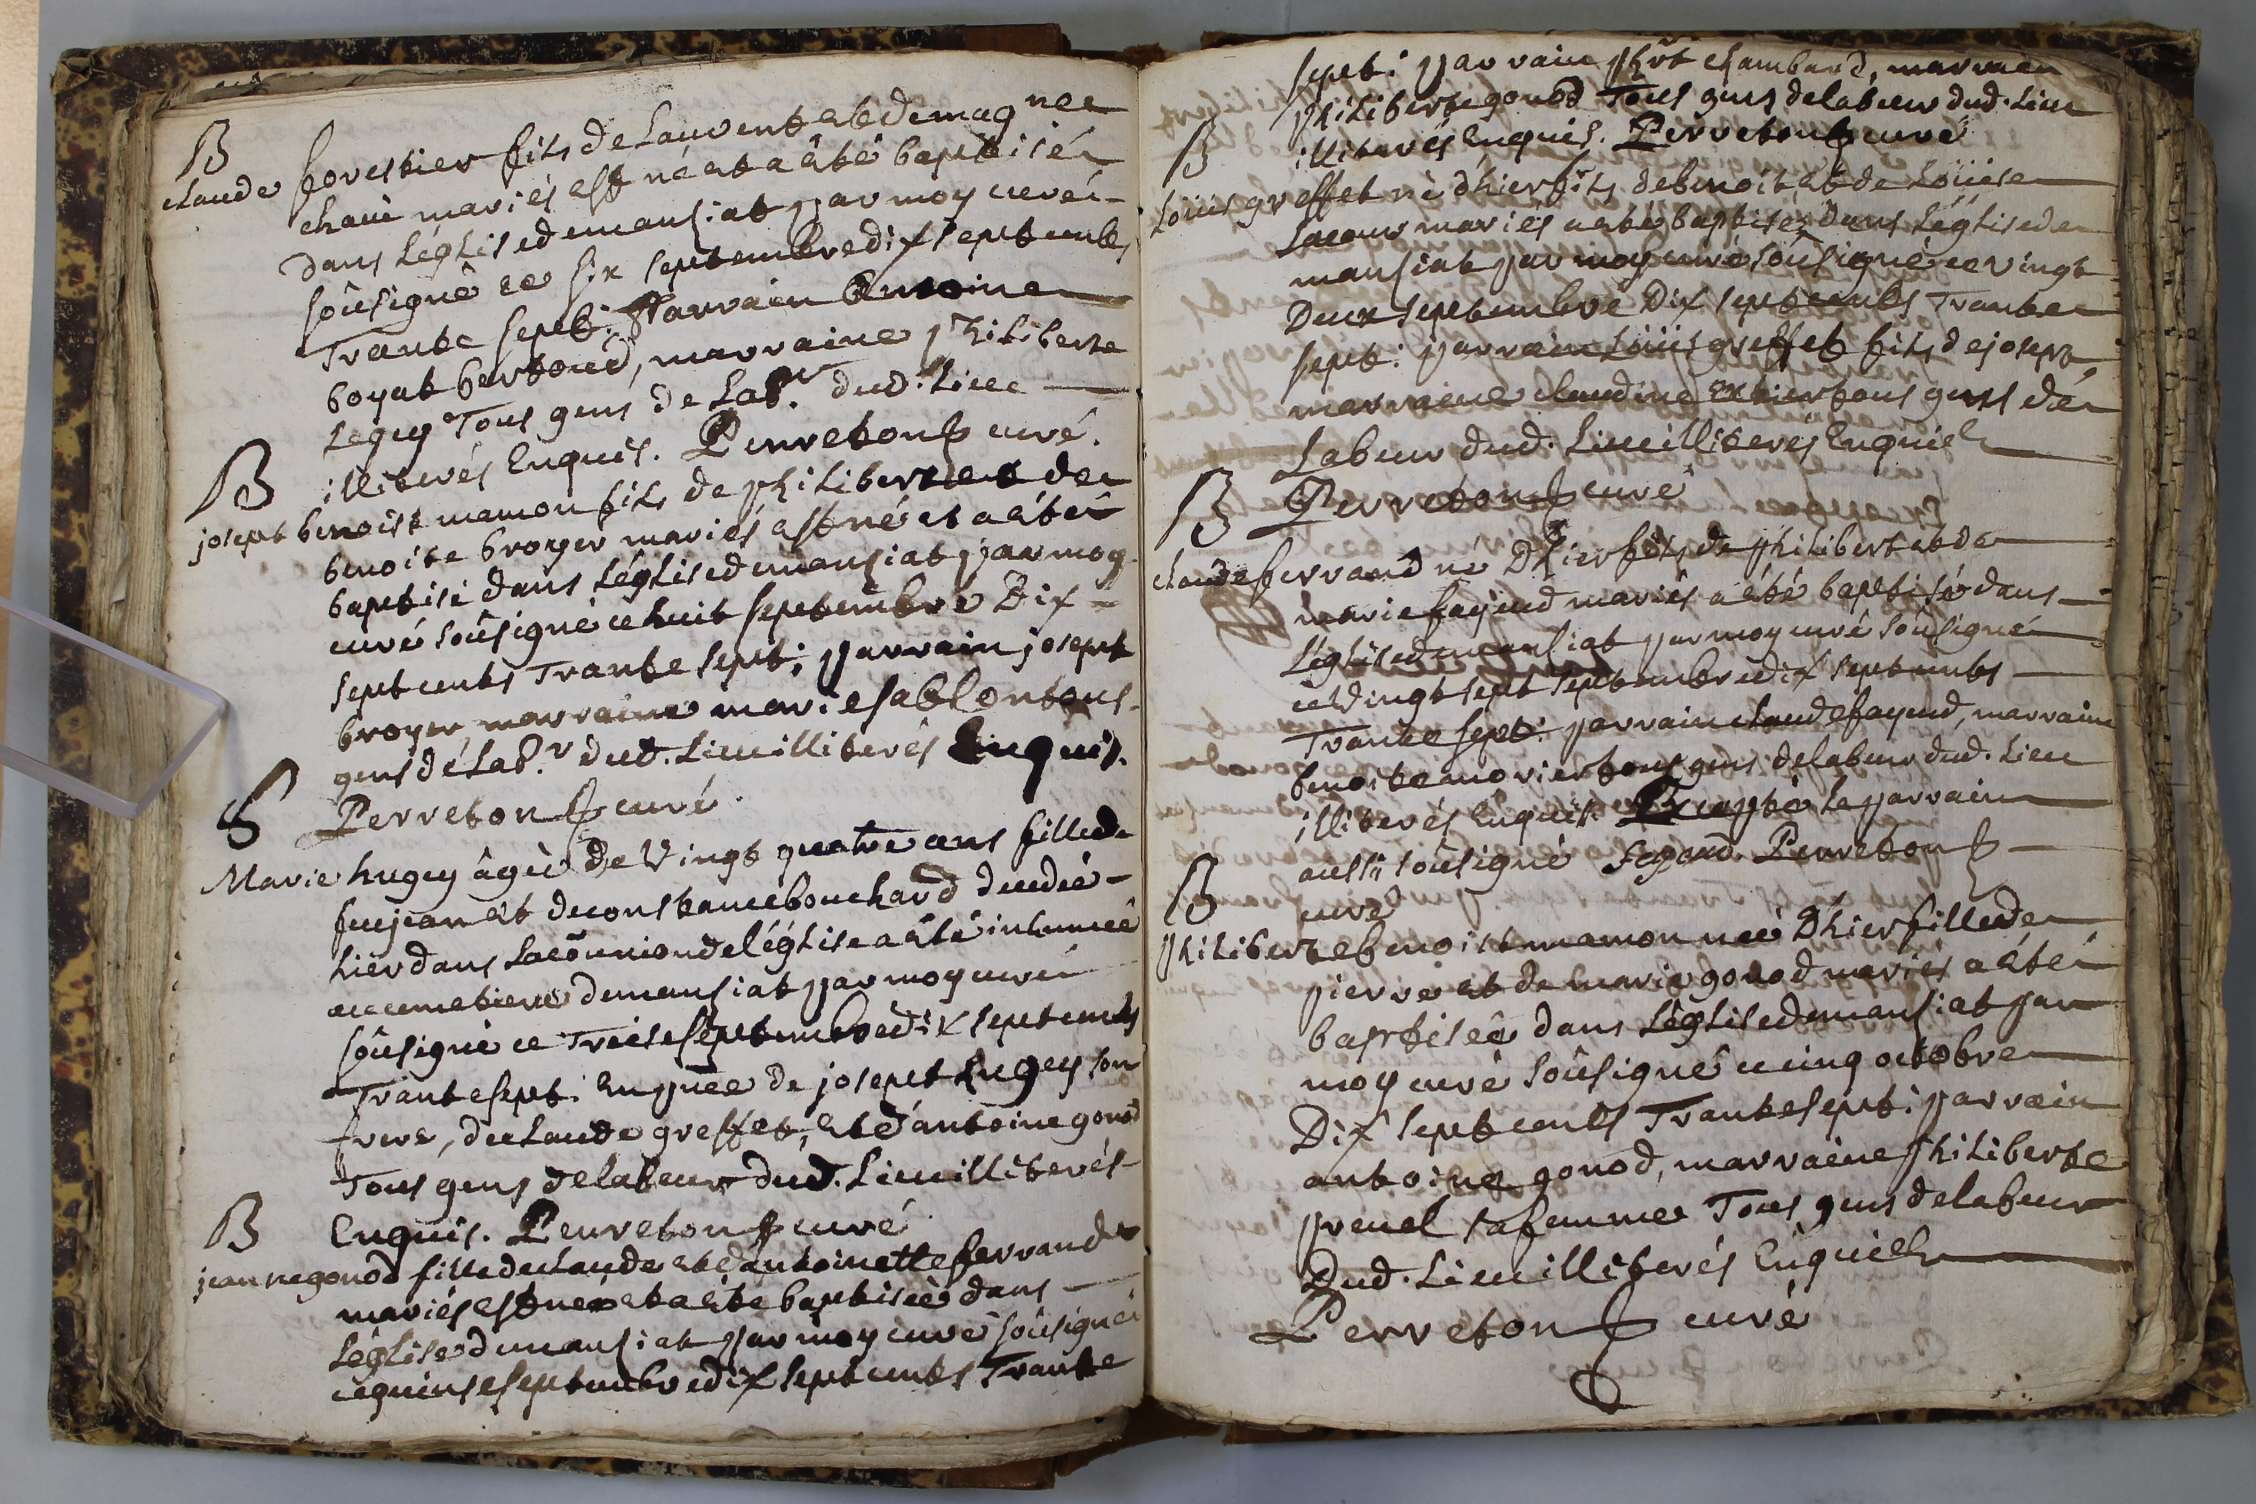 B
claude forestier fils de Laurent et de magnee
chavi mariés est né et a été baptisé
dans Léglise demansiat par moy curé
soûsigné ce six septembre dix sept cents
Trante sept. Parrain Antoine
boyat bertoud, marraine philiberte
Legey Tous gens de Lab.r dud. Lieu
illiterés Enquis. Perreton curé.
B
josept benoist mamon fils de philibert et de
benoite broyer mariés est né et a été
baptisé dans Léglise demansiat par moy
curé soûsigné ce huit septembre Dix
sept cents Trante sept; parrain josept
broyer, marraine marie sablon tous
gens de Lab.r dud. Lieu illiterés Enquis.
Perreton curé.
S
Marie hugey âgée de Vingt quatre ans fille de
feu jean et de constance bouchard decedée
hier dans La cõmunion de léglise a été inhumée
au cimetiere demansiat par moy curé
soûsigné ce Treise septembre dix sept cents
Trante sept. En pñce de josept hugey son
frere, de claude greffet, et d'antoine gonod
Tous gens de labeur dud. Lieu illiterés
Enquis. Perreton curé
B
jeanne gonod fille de claude et d'antoinette ferrand
mariés est née et a été baptisée dans
Léglise demansiat par moy curé soûsigné
ce quinse septembre dix sept cents Trante
sept: parrain phr̃t chambard, marraine
philiberte gonod Tous gens de labeur dud. Lieu
illiterés Enquis. Perreton curé
B
Loüis greffet né d'hier fils de benoit et de Loüise
Lacour mariés a été baptisé dans Léglise de
mansiat par moy curé soûsigné ce vingt
Deux septembre Dix sept cents Trante
sept: parrain Loüis greffet fils de josept,
marraine claudine tous gens de
Labeur dud. Lieu illiterés Enquis
Perreton curé
B
claude ferrand né D'hier fils de philibert et de
marie fayend mariés a été baptisé dans
Léglise demansiat par moy curé soûsigné
ce Vingt sept septembre dix sept cents
Trante sept: parrain claude fayend, marraine
benoite morier tous gens de labeur dud. Lieu
illiterés Enquis. Excepté le parrain
aussi soûsigné fayard. Perreton
curé
B
philiberte benoiste mamon née D'hier fille de
pierre et de marie gonod mariés a été
baptisée dans Léglise demansiat par
moy curé soûsigné ce cinq octobre
Dix sept cents Trante sept: parrain
antoine gonod, marraine philiberte
prevel sa femme Tous gens de labeur
Dud. Lieu illiterés Enquis
Perreton curé